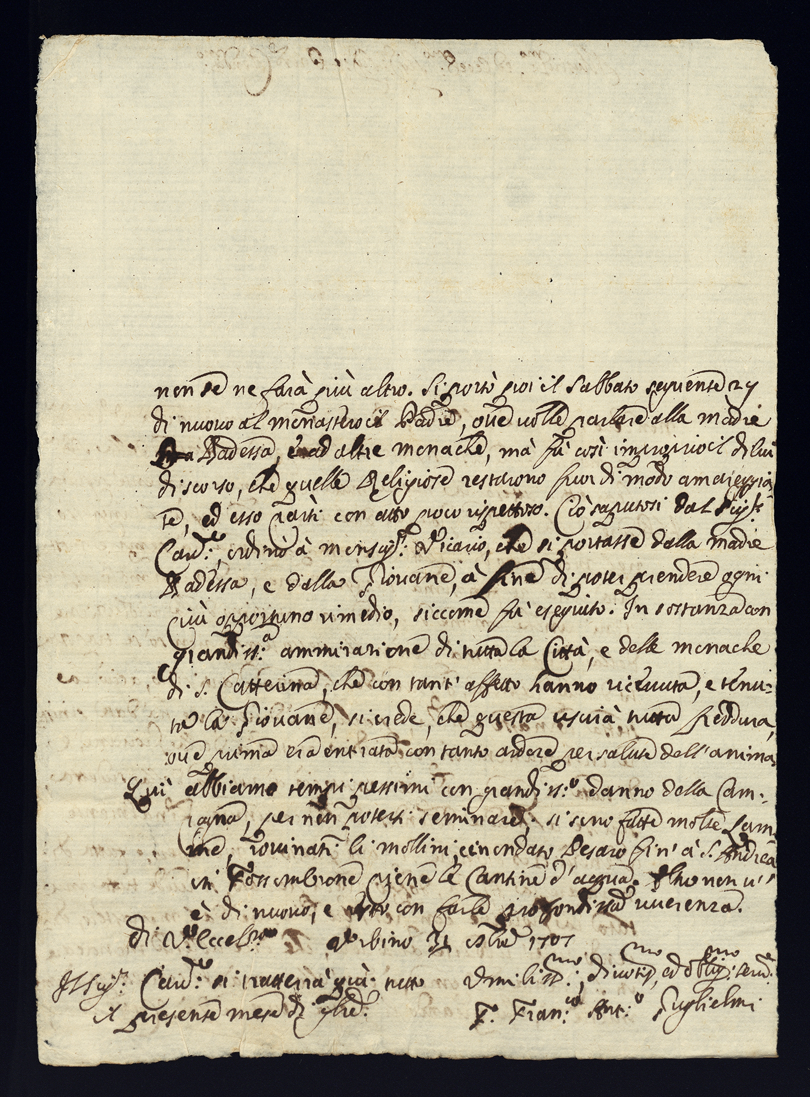 non se ne farà più altro. Si portò poi il Sabbato seguente 29
di nuovo al monastero il Padre, ove volle parlare alla madre
Badessa, ed ad altre monache, mà fù così improprio il di lui
discorso, che quelle Religiose restarono fuor di modo amareggia
te, ed esso partì con atto poco rispettoso. Ciò saputosi dal Sig.r
Card.le, ordinò à monsig.r Vicario, che si portasse dalla madre
Badessa, e dalla Giovane, à fine di poter prendere ogni
più opportuno rimedio, siccome fù eseguito. In sostanza con
grandiss.a ammirazione di tutta la Città, e delle monache
di S. Catterina, che con tant' affetto hanno ricevuta, e tenu-
ta la Giovane, si crede, che questa uscirà tutta freddura,
ove prima era entrata con tanto ardore per salute dell'anima
Quì abbiamo tempi pessimi con grandiss.o danno della Cam-
pagna, per non potersi seminare. si sono fatte molte
rovinati li mollini, inondato Pesaro fin' à S. Andrea
in Fossombrone piene le Cantine d'acqua. Altro non v'
è di nuovo, e resto con farle profondiss.a riverenza.
di V. Eccel.za Urbino 9bre 1707
Il Sig.r Card.le si tratterrà quà tutto Umiliss.mo, divotiss.mo, ed obblig.mo serv.e
il presente mese di 9bre. F. Fran.co Ant.o Guglielmi